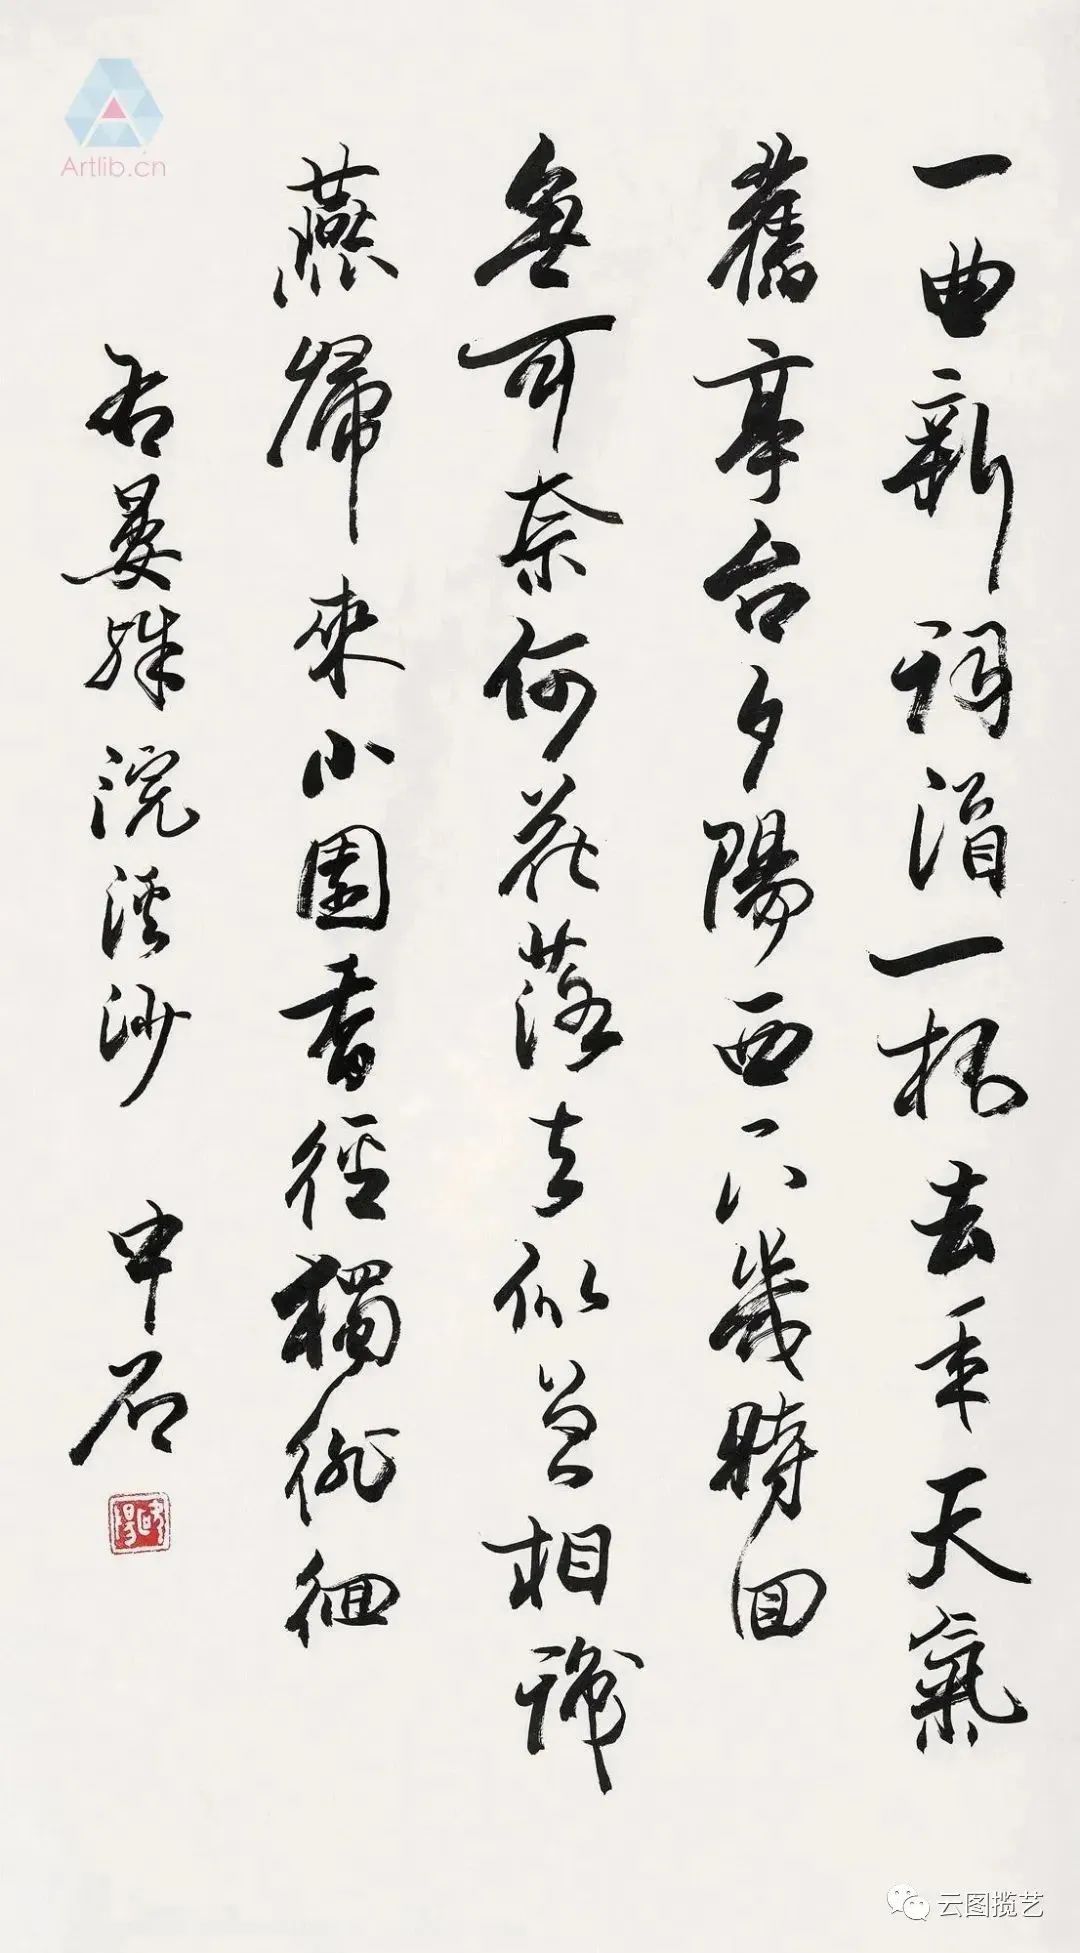 Artlib.cn
一曲新詞酒一杯去年天氣
舊亭台夕陽西下幾時回
無可奈何花落去似曾相識
燕歸來小園香徑獨徘徊
右晏殊浣溪沙 中石
云图揽艺